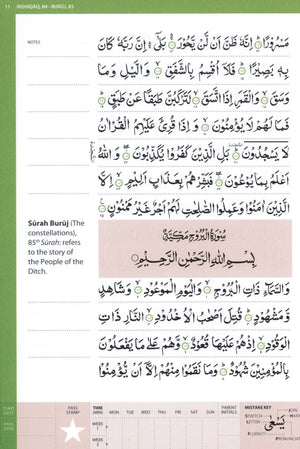 11 INSHIQĀQ, 84 - BURŪJ, 85
NOTES
مَسْرُوْرًا ۝ اِنَّهٗ ظَنَّ اَنْ لَّنْ يَّحُوْرَ ۝ بَلٰٓى ۛ اِنَّ رَبَّهٗ كَانَ
بِهٖ بَصِيْرًا ۝ فَلَآ اُقْسِمُ بِالشَّفَقِ ۝ وَالَّيْلِ وَمَا
وَسَقَ ۝ وَالْقَمَرِ اِذَا اتَّسَقَ ۝ لَتَرْكَبُنَّ طَبَقًا عَنْ طَبَقٍ ۝
فَمَا لَهُمْ لَا يُؤْمِنُوْنَ ۝ وَاِذَا قُرِئَ عَلَيْهِمُ الْقُرْاٰنُ
لَا يَسْجُدُوْنَ ۝ بَلِ الَّذِيْنَ كَفَرُوْا يُكَذِّبُوْنَ ۝ وَاللّٰهُ
اَعْلَمُ بِمَا يُوْعُوْنَ ۝ فَبَشِّرْهُمْ بِعَذَابٍ اَلِيْمٍ ۝ اِلَّا
الَّذِيْنَ اٰمَنُوْا وَعَمِلُوا الصّٰلِحٰتِ لَهُمْ اَجْرٌ غَيْرُ مَمْنُوْنٍ ۝
Sūrah Burūj (The
constellations),
85th Sūrah: refers
to the story of
the People of the
Ditch.
سُوْرَةُ الْبُرُوْجِ مَكِّيَّةٌ
بِسْمِ اللّٰهِ الرَّحْمٰنِ الرَّحِيْمِ
وَالسَّمَآءِ ذَاتِ الْبُرُوْجِ ۝ وَالْيَوْمِ الْمَوْعُوْدِ ۝ وَشَاهِدٍ
وَّمَشْهُوْدٍ ۝ قُتِلَ اَصْحٰبُ الْاُخْدُوْدِ ۝ النَّارِ ذَاتِ
الْوَقُوْدِ ۝ اِذْ هُمْ عَلَيْهَا قُعُوْدٌ ۝ وَّهُمْ عَلٰى مَا يَفْعَلُوْنَ
بِالْمُؤْمِنِيْنَ شُهُوْدٌ ۝ وَمَا نَقَمُوْا مِنْهُمْ اِلَّآ اَنْ يُّؤْمِنُوْا
START DATE
PASS DATE
PASS STAMP
TIME (MIN) MON TUE WED THU FRI SAT SUN PARENT INITIALS
WEEK 1
WEEK 2
MISTAKE KEY
STRETCH
LETTER
FLUENCY
JOIN
PRONUNCIATION